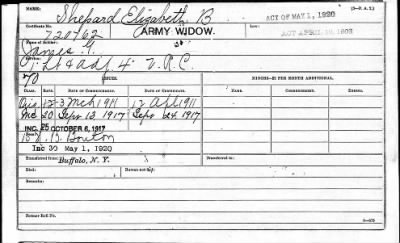 NAME. Shepard Elizabeth B ACT OF MAY 1, 1920 (3-F.A.I.)
No. of Certificate: 720762 ARMY WIDOW. ACT APRIL 19, 1908
Name of Soldier:
James G.
1. Lt & Adj. 4" V.R.C.
70 ISSUES. MINORS—$2 PER MONTH ADDITIONAL.
CLASS. RATE. DATE OF COMMENCEMENT. DATE OF CERTIFICATE. NAME. DATE OF COMMENCEMENT. DATE OF ENDING.
Orig 12 3 Mch 1911 17 Apl 1911
Inc 20 Sept 13, 1917 Sept 24, 1917
INC. 25 OCTOBER 6, 1917
B. Bouton
Inc 30 May 1, 1920
Transferred from: Buffalo, N.Y. Transferred to:
Died:
Remarks:
Former Roll No.